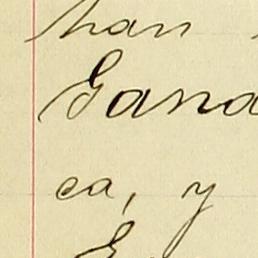 han
Gana
ca, y